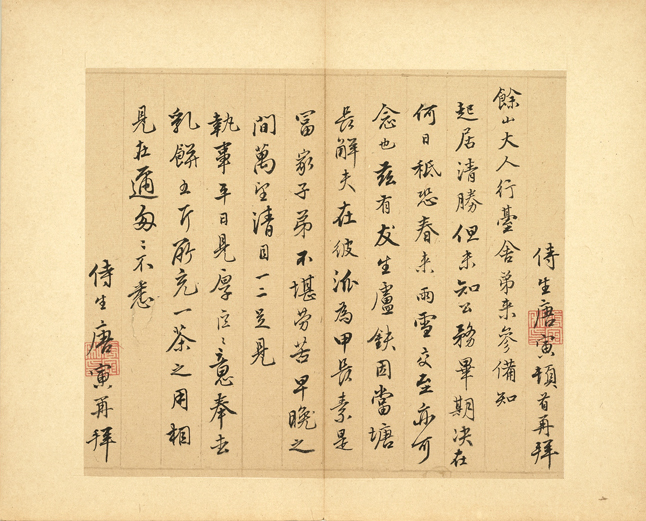 侍生唐寅頓首再拜
餘山大人行臺舍弟來參備知
起居清勝但未知公務畢期決在
何日秪恐春來雨雪交至亦可
念也茲有友生盧鈇因當塘
長解夫在彼派為甲長素是
富家子弟不堪勞苦早晚之
間萬望清目一二足見
執事平日見厚區〻意奉去
乳餅五斤所充一茶之用相
見在邇匆〻不悉
侍生唐寅再拜